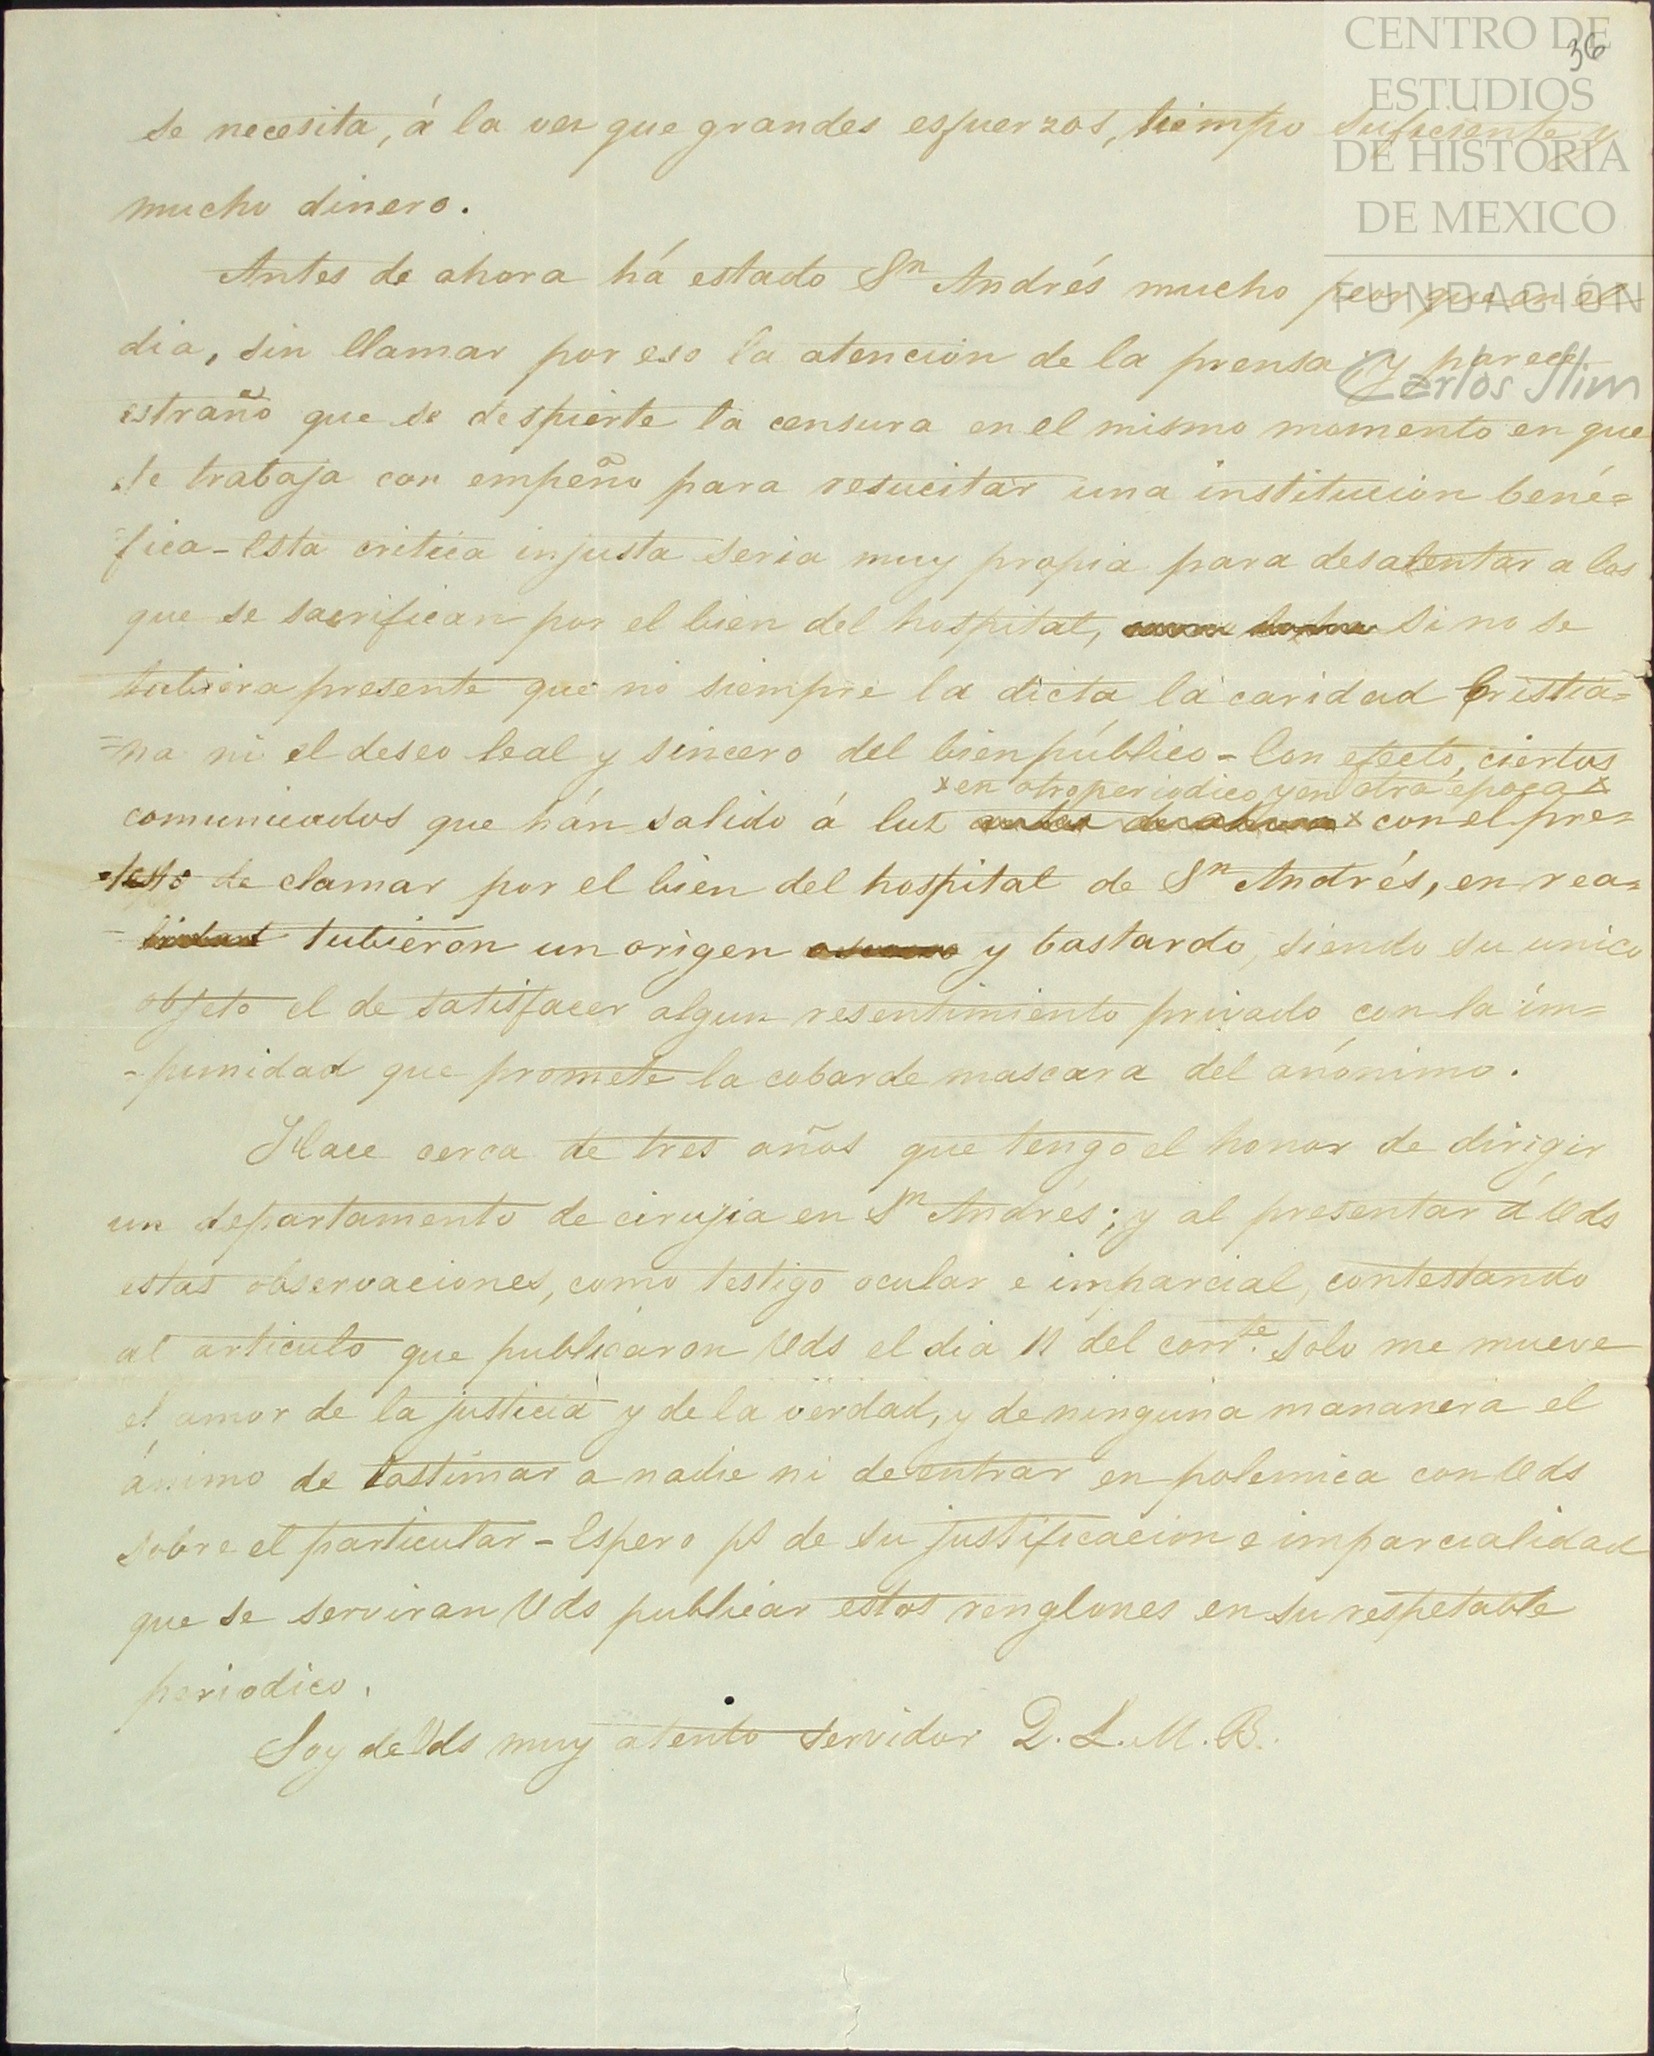 CENTRO DE
ESTUDIOS
DE HISTORIA
DE MEXICO
FUNDACIÓN
Carlos Slim
36
se necesita, á la vez que grandes esfuerzos, tiempo suficiente y
mucho dinero.
Antes de ahora há estado Sn Andrés mucho peor que en el
dia, sin llamar por eso la atencion de la prensa y parece
estraño que se despierte la censura en el mismo momento en que
se trabaja con empeño para resucitar una institucion bené=
fica - Esta critica injusta seria muy propia para desalentar a los
que se sacrifican por el bien del hospital, si no se
tubiera presente que no siempre la dicta la caridad Cristia=
=na ni el deseo leal y sincero del bien público - Con efecto, ciertos
x en otro periodico y en otra época x
comunicados que hán salido á luz antes de ahora x con el pre=
=testo de clamar por el bien del hospital de Sn Andrés, en rea=
=lidad tubieron un origen y bastardo, siendo su unico
objeto el de satisfacer algun resentimiento privado con la im=
=punidad que promete la cobarde mascara del anónimo.
Hace cerca de tres años que tengo el honor de dirigir
un departamento de cirujia en Sn Andrés; y al presentar á Uds
estas observaciones, como testigo ocular e imparcial, contestando
al articulo que publicaron Uds el dia 11 del corrte. solo me mueve
el amor de la justicia y de la verdad, y de ninguna mananera el
ánimo de lastimar a nadie ni de entrar en polemica con Uds
sobre el particular - Espero ps de su justificacion e imparcialidad
que se serviran Uds publicar estos renglones en su respetable
periodico.
Soy de Uds muy atento servidor Q. L. M. B.